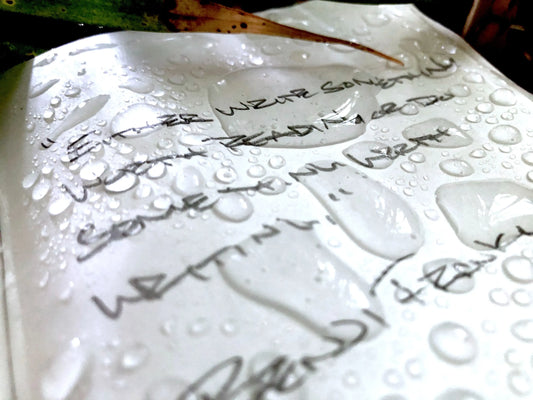 "EITHER WRITE SOMETHING
WORTH READING OR DO
SOMETHING WORTH
WRITING."